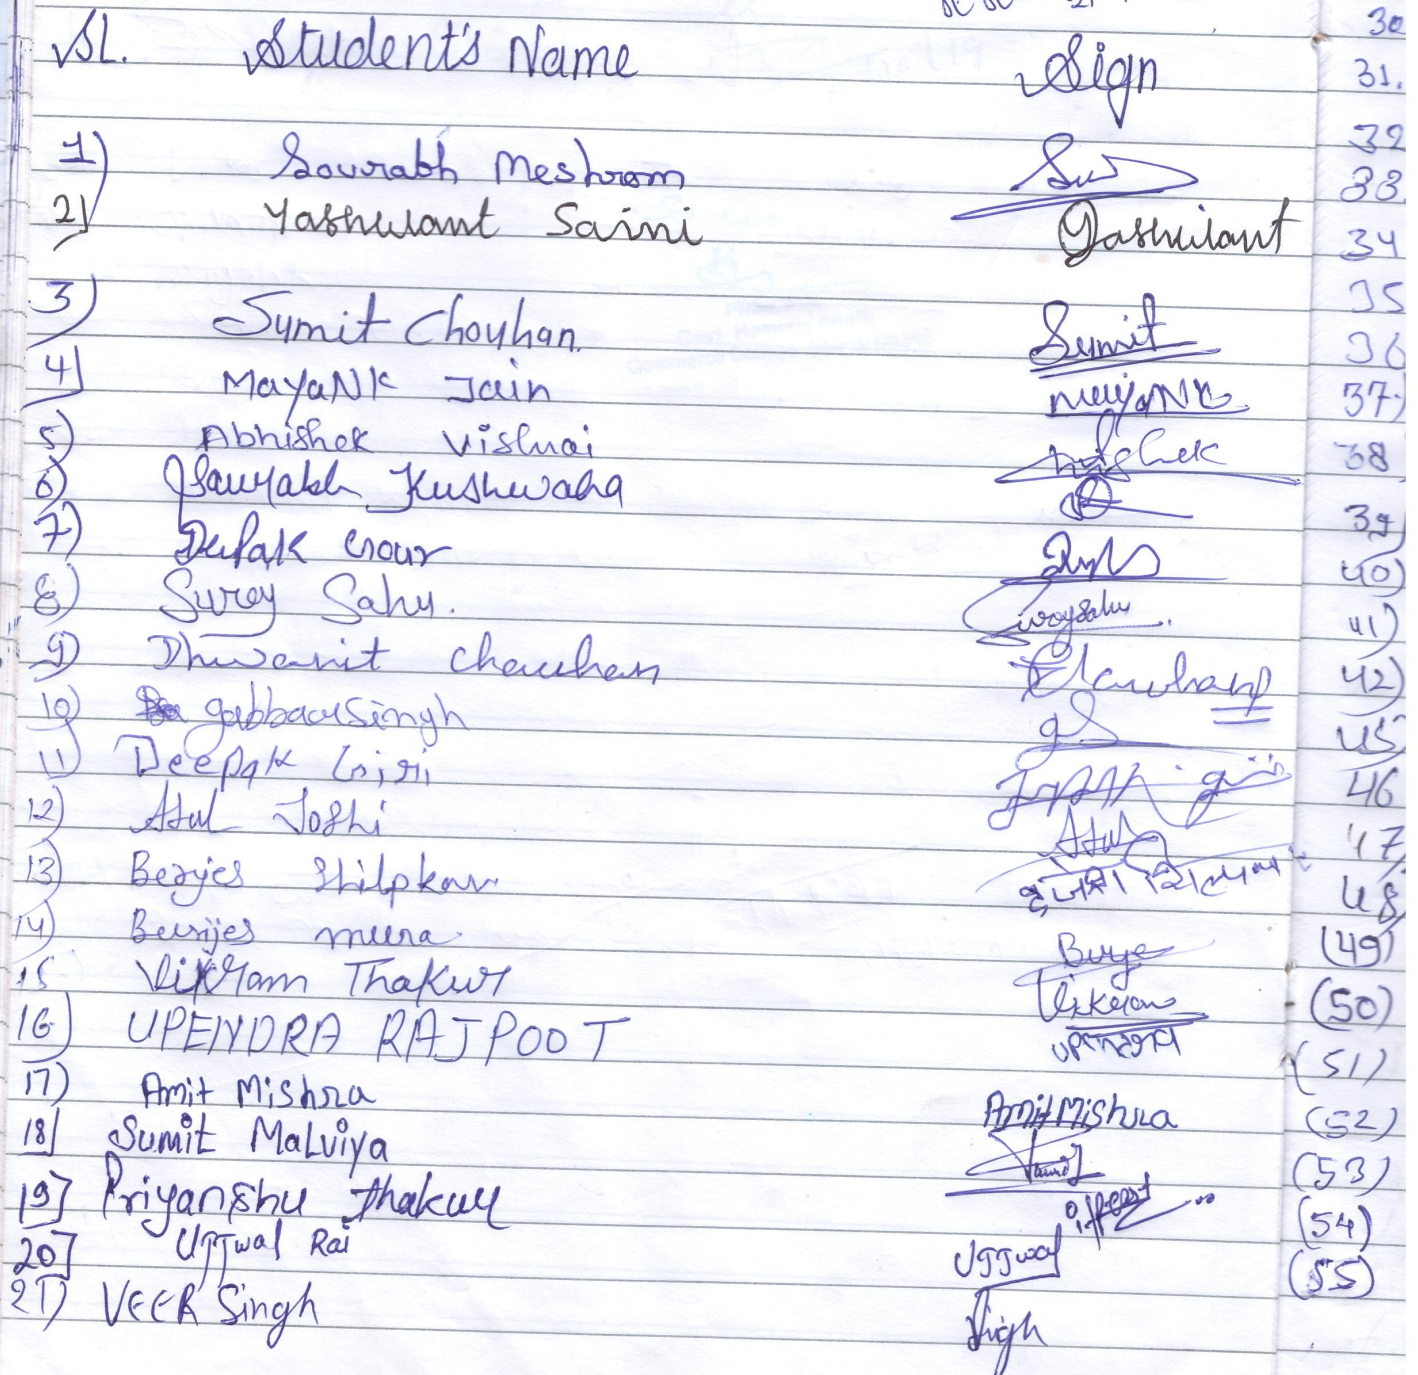 SL. Student's Name Sign
1) Sourabh Meshram
2) Yashwant Saini Yashwant
3) Sumit Chouhan. Sumit
4) MayaNK Jain MayaNK
5) Abhishek
6) Saurabh Kushwaha
7) Deepak Gour
8) Suraj Sahu. Surajsahu
9) Dhwanit Chauhan Chauhan
10) gabbarsingh gS
11) Deepak Giri
12) Atul Joshi Atul
13) Berjes Shilpkar
14) Burijes meena
15 Vikram Thakur Vikram
16) UPENDRA RAJPOOT
17) Amit Mishra Amit Mishra
18) Sumit Malviya
19] Priyanshu Thakur
20] Ujjwal Rai Ujjwal
21) VEER Singh
30
31.
32
33
34
35
36
37)
38
39)
40)
41)
42)
45
46
47
48
(49)
(50)
(51)
(52)
(53)
(54)
(55)